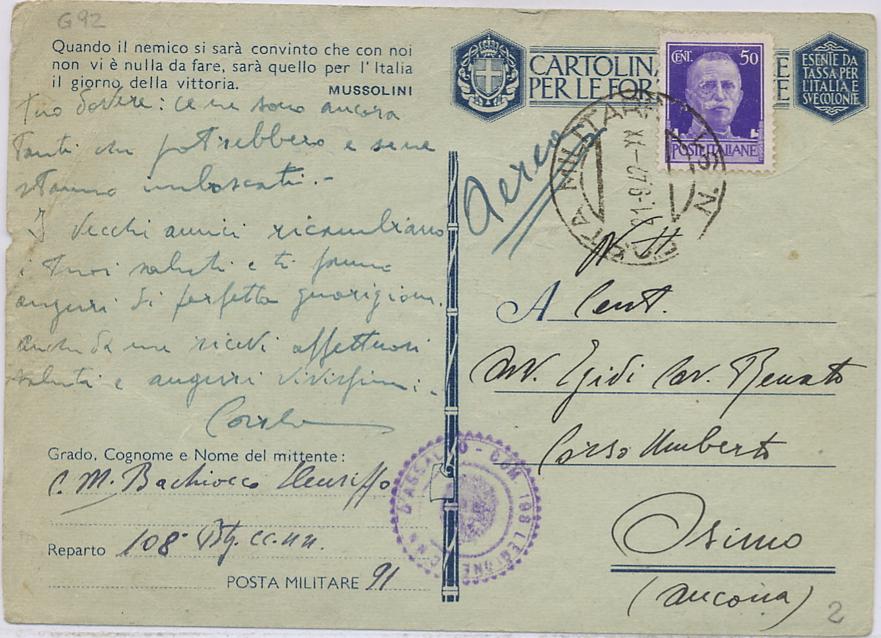 G92
Quando il nemico si sarà convinto che con noi
non vi è nulla da fare, sarà quello per l'Italia
il giorno della vittoria.
MUSSOLINI
Tuo dovere: ce ne sono ancora
tanti che potrebbero e se ne
stanno imboscati.-
I vecchi amici ricambiano
i tuoi saluti e ti fanno
auguri di perfetta guarigione.
anche da me ricevi affettuosi
saluti e auguri vivissimi.
Grado, Cognome e Nome del mittente:
C. M. Bachiocco
Reparto 108° Btg. CC.NN.
POSTA MILITARE 91
CARTOLINA
PER LE FOR
CENT. 50
POSTE ITALIANE
ESENTE DA
TASSA PER
L'ITALIA E
SUE COLONIE
POSTA MILITARE N.
21-9-42-XX
Aerea
A Cent.
avv. Egidi cav. Renato
Corso Umberto
Osimo
(Ancona)
D'ASSALTO - COM 108 LEGIONE CC.NN
2